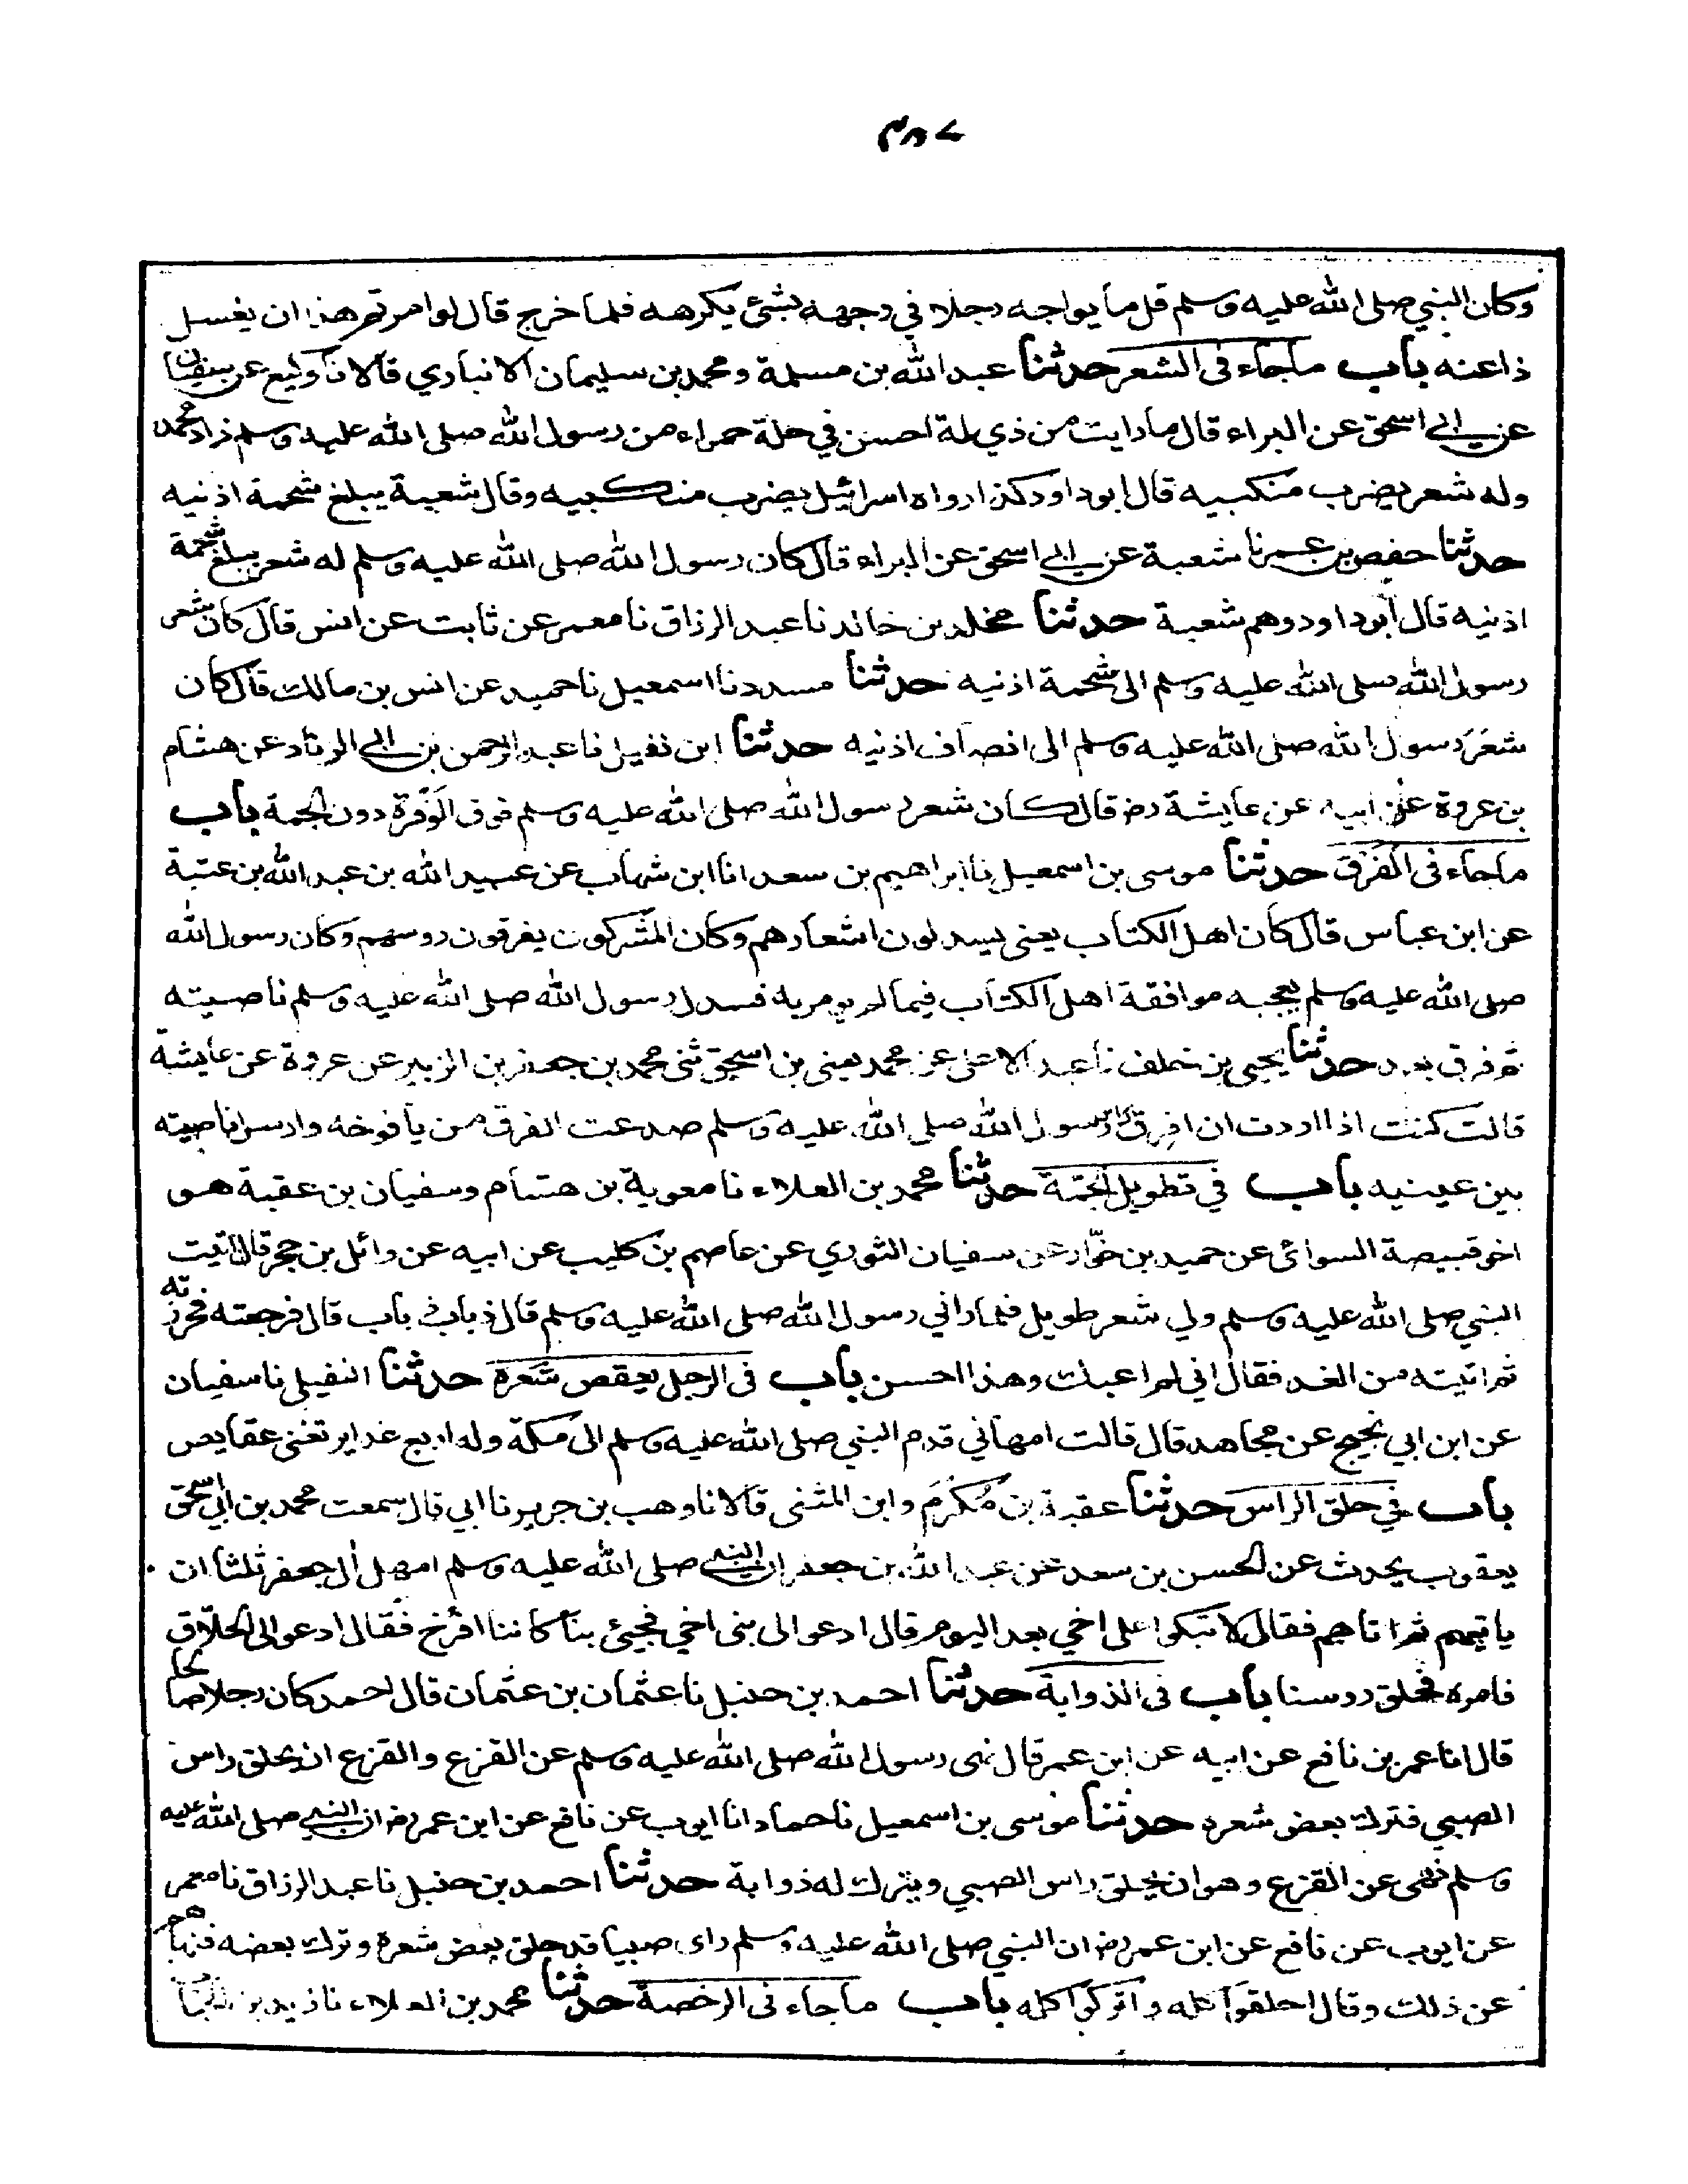 ٤٥٧
وكان النبي صلى الله عليه وسلم قل ما يواجه رجلا في وجهه بشئ يكرهه فلما خرج قال لو امرتم هذا ان يغسل
ذا عنه باب ماجاء في الشعر حدثنا عبد الله بن مسلمة ومحمد بن سليمان الانباري قالا نا وكيع عن سفيان
عن ابي اسحق عن البراء قال ما رايت من ذي لمة احسن في حلة حمراء من رسول الله صلى الله عليه وسلم زاد محمد
وله شعر يضرب منكبيه قال ابو داود كذا رواه اسرائيل يضرب منكبيه وقال شعبة يبلغ شحمة اذنيه
حدثنا حفص بن عمر نا شعبة عن ابي اسحق عن البراء قال كان رسول الله صلى الله عليه وسلم له شعر يبلغ شحمة
اذنيه قال ابو داود وهم شعبة حدثنا مخلد بن خالد نا عبد الرزاق نا معمر عن ثابت عن انس قال كان شعر
رسول الله صلى الله عليه وسلم الى شحمة اذنيه حدثنا مسدد نا اسمعيل نا حميد عن انس بن مالك قال كان
شعر رسول الله صلى الله عليه وسلم الى انصاف اذنيه حدثنا ابن نفيل نا عبد الرحمن بن ابي الزناد عن هشام
بن عروة عن ابيه عن عايشة رض قال كان شعر رسول الله صلى الله عليه وسلم فوق الوفرة دون الجمة باب
ماجاء في الفرق حدثنا موسى بن اسمعيل نا ابراهيم بن سعد انا ابن شهاب عن عبيد الله بن عبد الله بن عتبة
عن ابن عباس قال كان اهل الكتاب يعني يسدلون اشعارهم وكان المشركون يفرقون روسهم وكان رسول الله
صلى الله عليه وسلم يعجبه موافقة اهل الكتاب فيما لم يومر به فسدل رسول الله صلى الله عليه وسلم ناصيته
ثم فرق بعد حدثنا يحيى بن خلف نا عبد الاعلى عن محمد يعني بن اسحق ثنى محمد بن جعفر بن الزبير عن عروة عن عايشة
قالت كنت اذا اردت ان افرق راس رسول الله صلى الله عليه وسلم صدعت الفرق من يافوخه وارسل ناصيته
بين عينيه باب في تطويل الجمة حدثنا محمد بن العلاء نا معوية بن هشام وسفيان بن عقبة هو
اخو قبيصة السوائى عن حميد بن خوّار عن سفيان الثوري عن عاصم بن كليب عن ابيه عن وائل بن حجر قال اتيت
النبي صلى الله عليه وسلم ولي شعر طويل فلما راني رسول الله صلى الله عليه وسلم قال ذباب ذباب قال فرجعته فجززته
ثم اتيته من الغد فقال اني لم اعبك وهذا احسن باب في الرجل يعقص شعره حدثنا النفيلي نا سفيان
عن ابن ابي نجيح عن مجاهد قال قالت ام هاني قدم النبي صلى الله عليه وسلم الى مكة وله اربع غداير تعنى عقايص
باب في حلق الراس حدثنا عقبة بن مُكرَم وابن المثنى قالا نا وهب بن جرير نا ابي قال سمعت محمد بن ابي
يعقوب يحدث عن الحسن بن سعد عن عبد الله بن جعفر ان النبي صلى الله عليه وسلم امهل ال جعفر ثلثا ان
ياتيهم ثم اتاهم فقال لا تبكوا على اخي بعد اليوم قال ادعوا لى بنى اخي فجيئ بنا كاننا افرخ فقال ادعوا لى الحلّاق
فامره فحلق روسنا باب في الذوابة حدثنا احمد بن حنبل نا عثمان بن عثمان قال احمد كان رجلا صالحا
قال انا عمر بن نافع عن ابيه عن ابن عمر قال نهى رسول الله صلى الله عليه وسلم عن القزع والقزع ان يحلق راس
الصبي فترك بعض شعره حدثنا موسى بن اسمعيل نا حماد انا ايوب عن نافع عن ابن عمر رض ان النبي صلى الله عليه
وسلم نهى عن القزع وهو ان يحلق راس الصبي ويترك له ذوابة حدثنا احمد بن حنبل نا عبد الرزاق نا معمر
عن ايوب عن نافع عن ابن عمر رض ان النبي صلى الله عليه وسلم راى صبيا قد حلق بعض شعره وترك بعضه فنهاهم
عن ذلك وقال احلقوا كله واتركوا كله باب ماجاء في الرخصة حدثنا محمد بن العلاء نا زيد بن